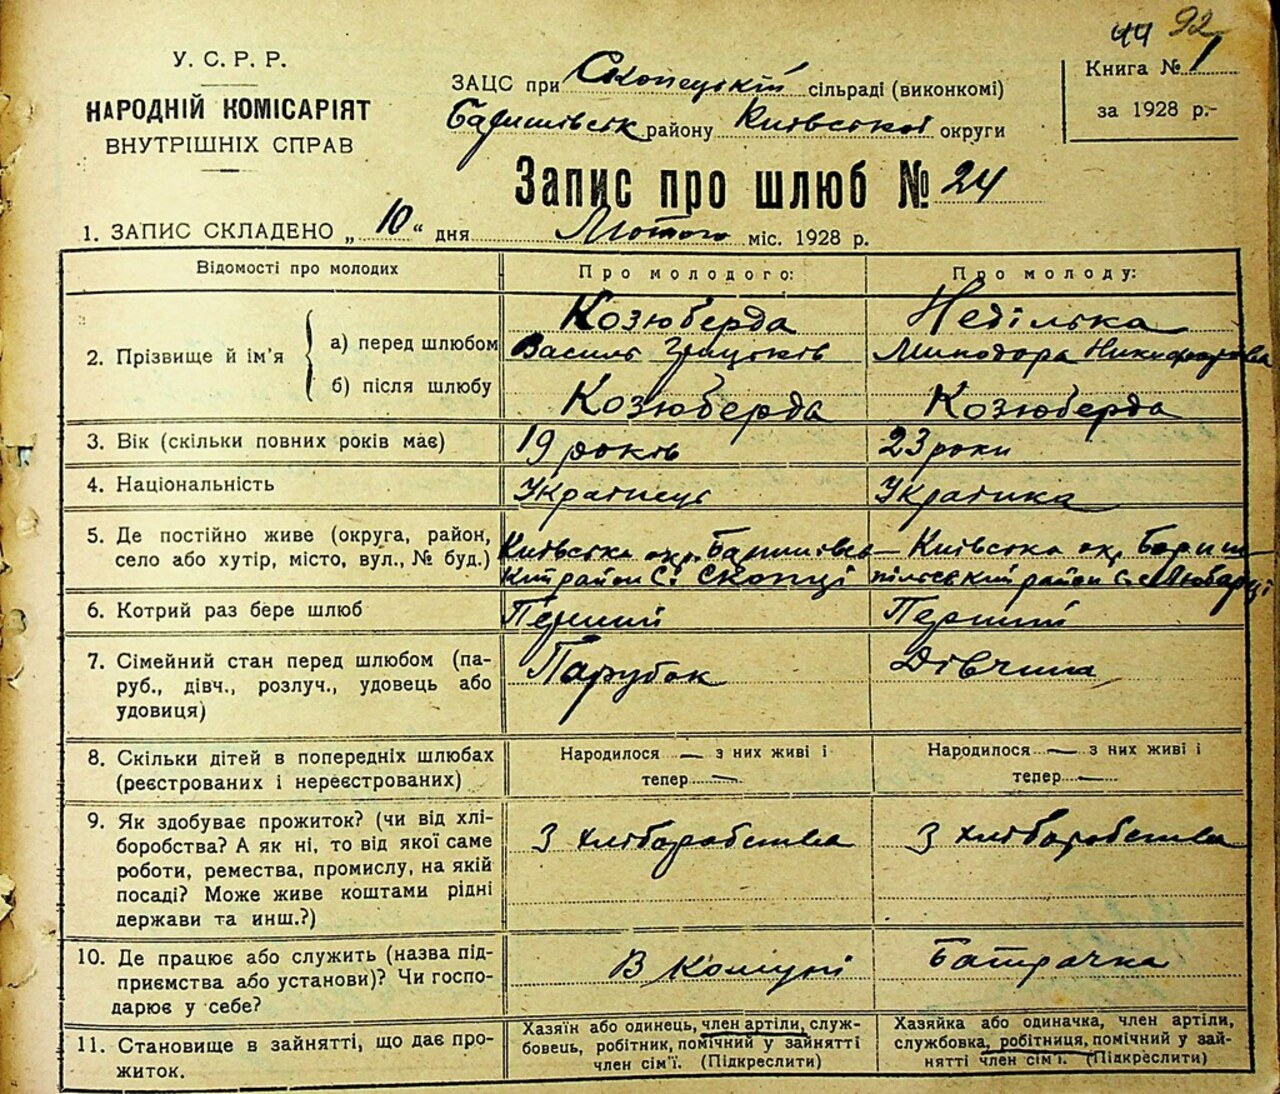 44 92
У. С. Р. Р.
НАРОДНІЙ КОМІСАРІЯТ
ВНУТРІШНІХ СПРАВ
ЗАЦС при Скопецькій сільраді (виконкомі)
Баришівськ району Київської округи
Книга № 1
за 1928 р.-
Запис про шлюб № 24
1. ЗАПИС СКЛАДЕНО „ 10 “ дня Лютого міс. 1928 р.
Відомості про молодих
Про молодого:
Про молоду:
2. Прізвище й ім'я
а) перед шлюбом
Козюберда
Василь Грицьків
Неділька
Минодора Никифорова
б) після шлюбу
Козюберда
Козюберда
3. Вік (скільки повних років має)
19 років
23 роки
4. Національність
Українець
Українка
5. Де постійно живе (округа, район,
село або хутір, місто, вул., № буд.)
Київська окр. Баришівсь-
кий район С. Скопці
Київська окр. Бориш-
пільський район С. Любарці
6. Котрий раз бере шлюб
Перший
Перший
7. Сімейний стан перед шлюбом (па-
руб., дівч., розлуч., удовець або
удовиця)
Парубок
Дівчина
8. Скільки дітей в попередніх шлюбах
(реєстрованих і нереєстрованих)
Народилося — з них живі і
тепер —
Народилося — з них живі і
тепер —
9. Як здобуває прожиток? (чи від хлі-
боробства? А як ні, то від якої саме
роботи, ремества, промислу, на якій
посаді? Може живе коштами рідні
держави та инш.?)
З хліборобства
З хліборобства
10. Де працює або служить (назва під-
приємства або установи)? Чи госпо-
дарює у себе?
В Комуні
Батрачка
11. Становище в зайнятті, що дає про-
житок.
Хазяїн або одинець, член артіли, служ-
бовець, робітник, помічний у зайнятті
член сім'ї. (Підкреслити)
Хазяйка або одиначка, член артіли,
службовка, робітниця, помічний у зай-
нятті член сім'ї. (Підкреслити)